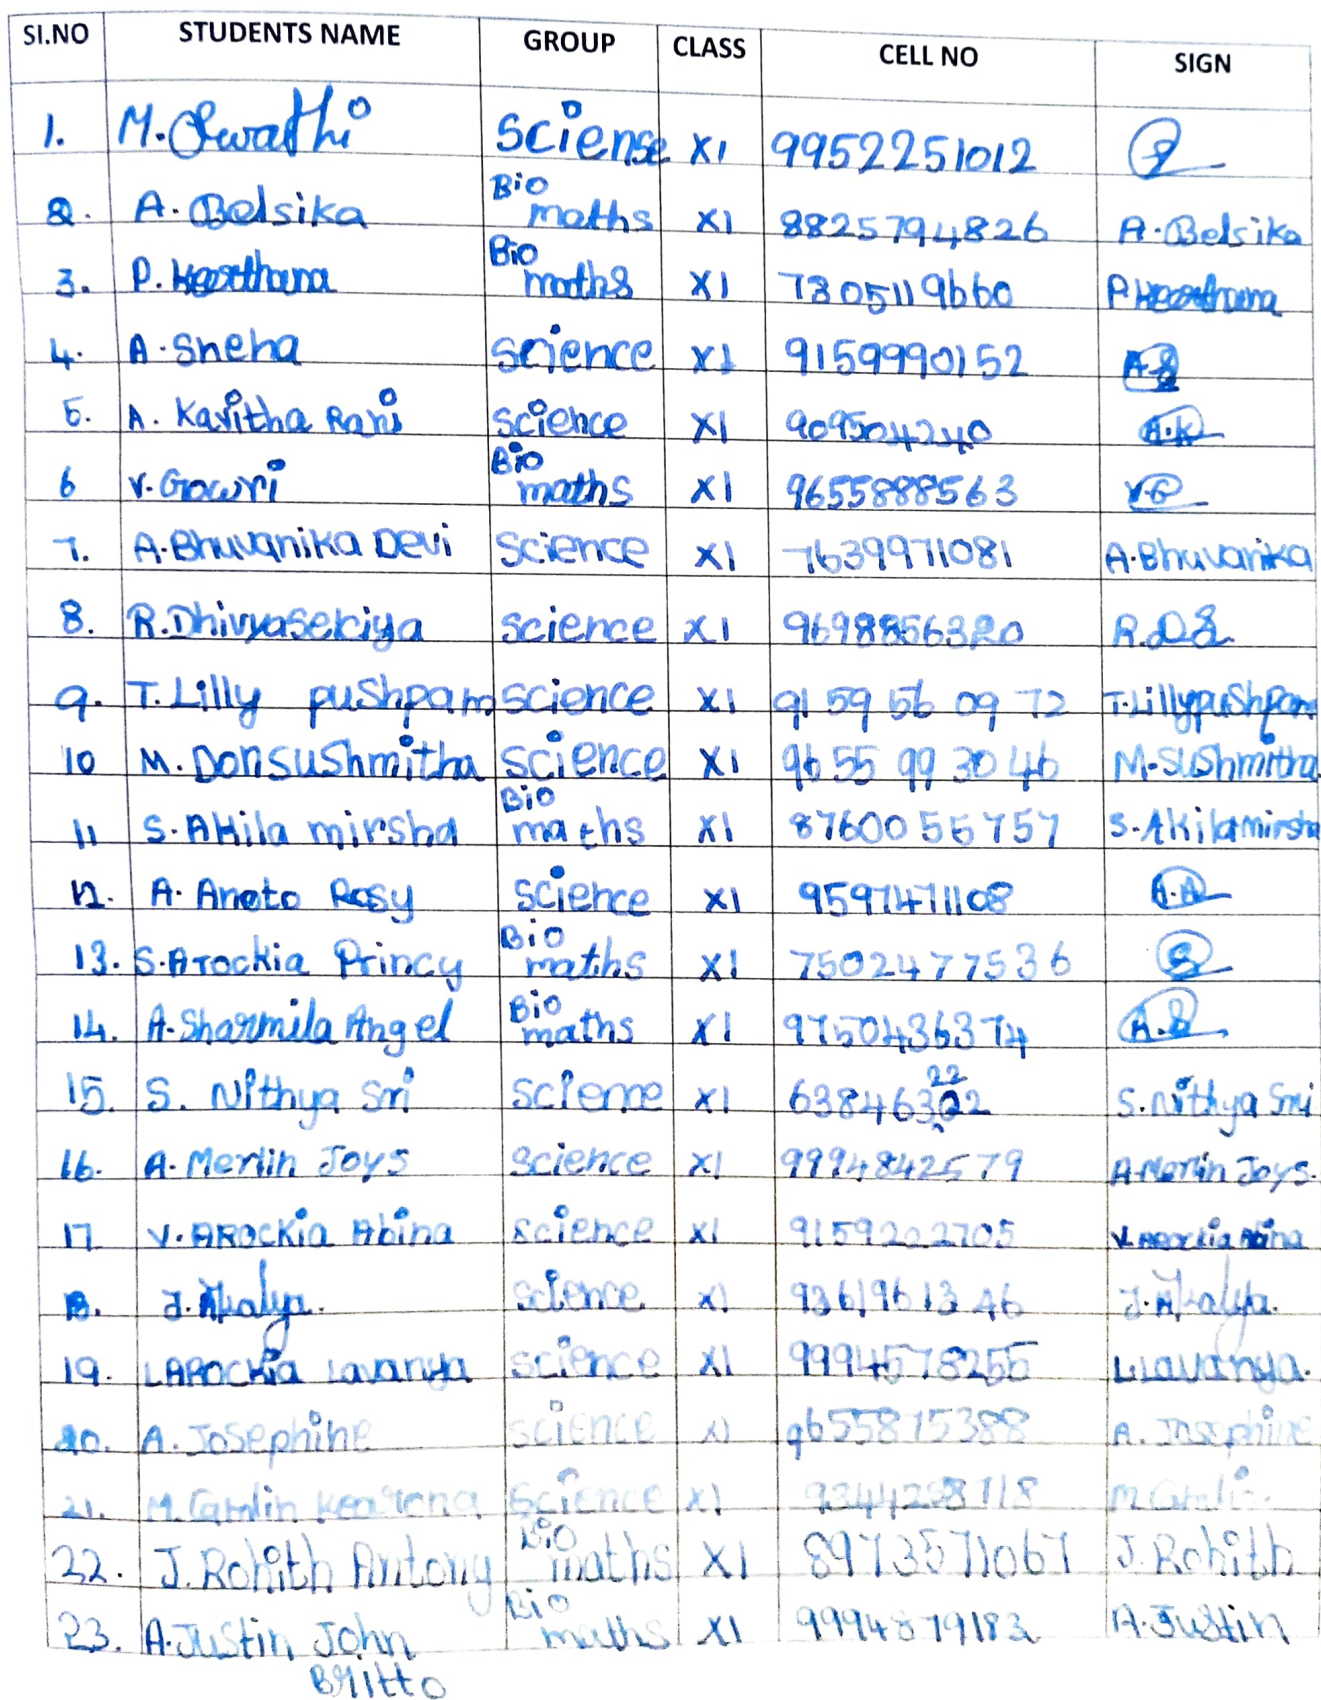 SI.NO STUDENTS NAME GROUP CLASS CELL NO SIGN
1. M. Swathi Sciense XI 9952251012
2. A. Belsika Bio maths XI 8825794826 A. Belsika
3. P. Keerthana Bio maths XI 7305119660 P. Keerthana
4. A. Sneha Science XI 9159990152 A.S
5. A. Kavitha Rani Science XI 9095042240 A.K
6 V. Gowri Bio maths XI 9655888563 V.G
7. A. Bhuvanika Devi Science XI 7639971081 A. Bhuvanika
8. R. Dhivyasekiya Science XI 9698856320 R.D.S
9. T. Lilly pushpam Science XI 91 59 56 09 72 T. Lillypushpam
10 M. Donsushmitha Science XI 96 55 99 30 46 M. Sushmitha
11 S. Akila mirsha Bio maths XI 87600 55757 S. Akilamirsha
12. A. Aneto Rosy Science XI 9597471108 A.A
13. S. Arockia Princy Bio maths XI 7502477536 S
14. A. Sharmila Angel Bio maths XI 9750436374 A.S
15. S. Nithya Sri Science XI S. Nithya Sri
16. A. Merlin Joys Science XI 9994842579 A. Merlin Joys.
17 V. AROCKia Abina Science XI 9159202705 V. Arockia Abina
18. J. Akalya. Science XI 9361961346 J. Akalya.
19. L AROCKia Lavanya Science XI 9994578255 L. Lavanya.
20. A. Josephine Science XI 9655875388 A. Josephine
21. M. Camlin Science XI 9344298718
22. J. Rohith Antony Bio maths XI 8973571067 J. Rohith
23. A. Justin John Bio maths XI 9994879182 A. Justin
Britto